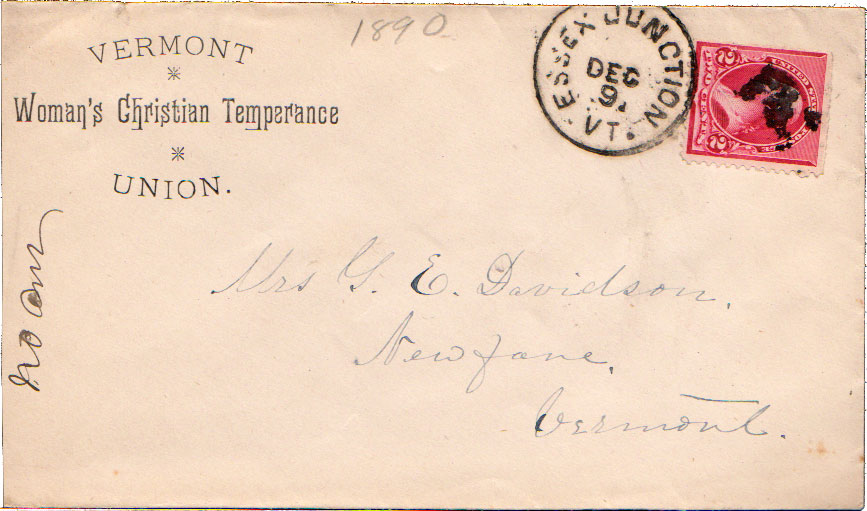 1890
VERMONT
Woman's Christian Temperance
UNION.
ESSEX JUNCTION
DEC
9
VT.
2 2
UNITED STATES
Mrs G. E. Davidson.
Newfane.
Vermont.
no ans